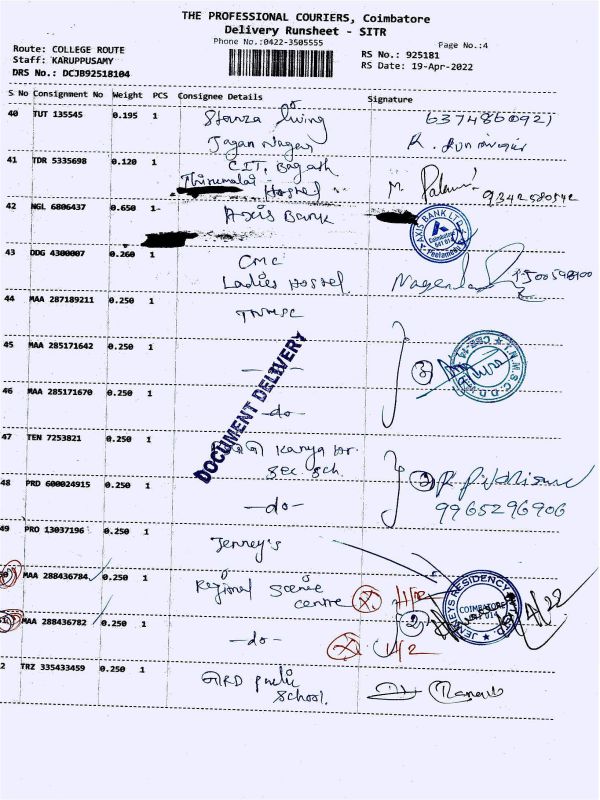 THE PROFESSIONAL COURIERS, Coimbatore
Delivery Runsheet - SITR
Phone No.:0422-3505555
Page No.:4
Route: COLLEGE ROUTE
Staff: KARUPPUSAMY
DRS No.: DCJB92518104
RS No.: 925181
RS Date: 19-Apr-2022
S No Consignment No Weight PCS Consignee Details Signature
40 TUT 135545 0.195 1 Stanza living 6374860921
Jagan Nagar
41 TDR 5335698 0.120 1 C.I.T.
Thirumalai Hostel M. 9342580542
42 NGL 6806437 0.650 1 Axis Bank
AXIS BANK LTD
Coimbatore
641 014
Peelamedu
43 ODG 4300007 0.260 1 CMC
Ladies Hostel
44 MAA 287189211 0.250 1 TNMSC
45 MAA 285171642 0.250 1
T.N.M.S.C.
46 MAA 285171670 0.250 1 -do-
DOCUMENT DELIVERY
47 TEN 7253821 0.250 1 Kanya Hr.
Sec. Sch.
48 PRD 600024915 0.250 1 -do- 9965296906
49 PRO 13037196 0.250 1 Jenney's
50 MAA 288436784 0.250 1 Regional Science
centre
JENNEYS RESIDENCY
COIMBATORE
51 MAA 288436782 0.250 1 -do-
2 TRZ 335433459 0.250 1 GRD public
School.